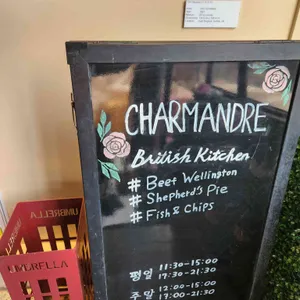 CHARMANDRE
British Kitchen
# Beef Wellington
# Shepherd's Pie
# Fish & Chips
평일 11:30-15:00
17:30-21:30
주말 12:00-15:00
17:00-21:30
UMBRELLA
UMBRELLA